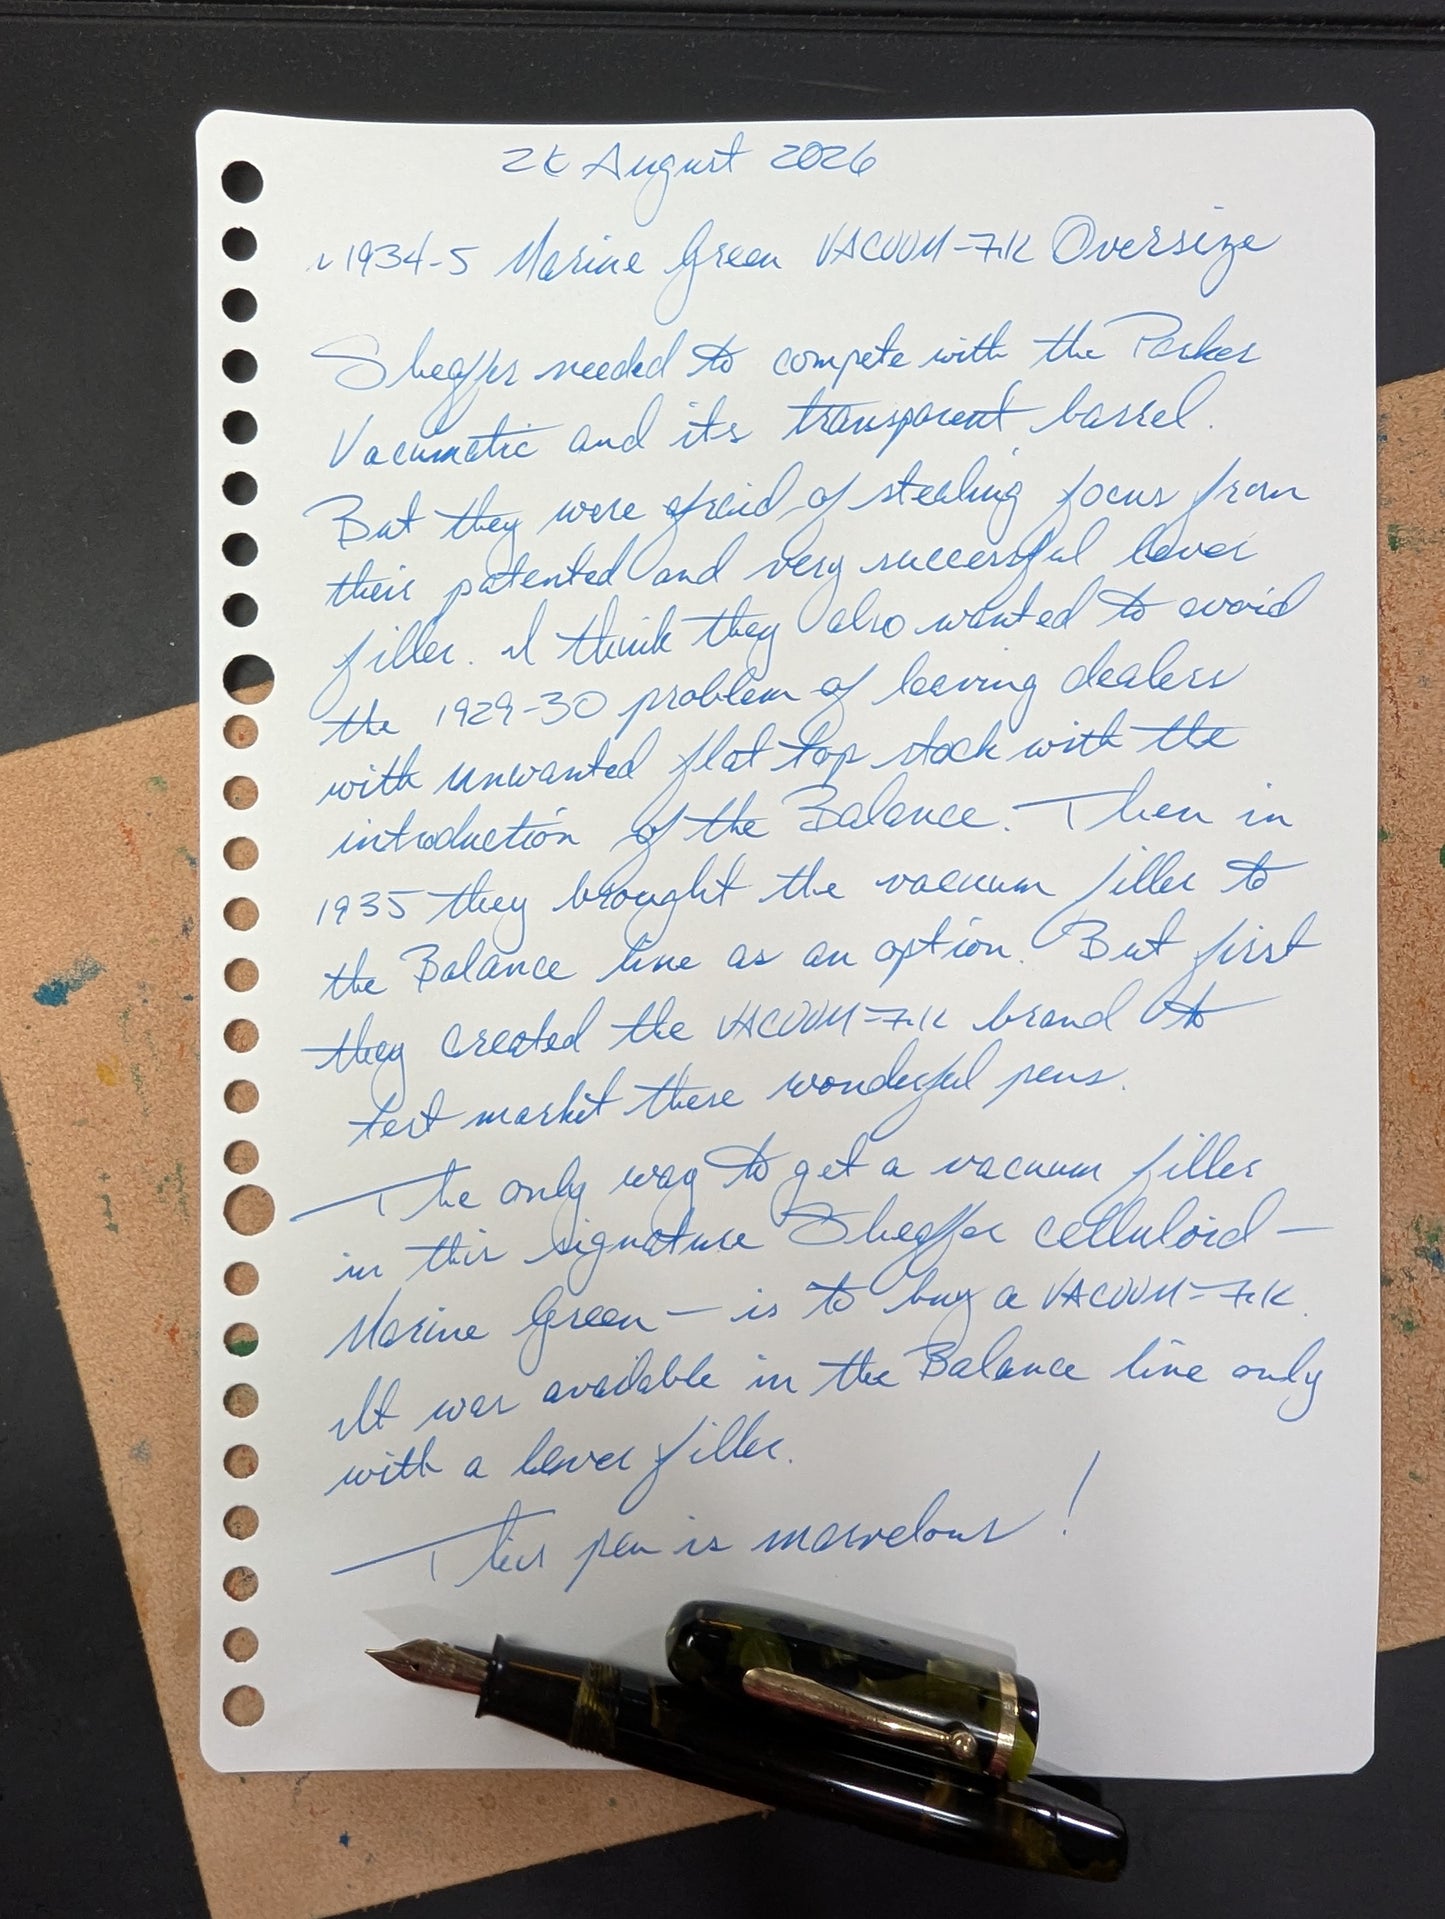 August 2026
~1934-5 Marine Green VACUUM-FIL Oversize
Sheaffer needed to compete with the Parker
Vacumatic and its transparent barrel.
But they were afraid of stealing focus from
their patented and very successful lever
filler. I think they also wanted to avoid
the 1929-30 problem of leaving dealers
with unwanted flat top stock with the
introduction of the Balance. Then in
1935 they brought the vacuum filler to
the Balance line as an option. But first
they created the VACUUM-FIL brand to
test market these wonderful pens.
The only way to get a vacuum filler
in this signature Sheaffer celluloid —
Marine Green — is to buy a VACUUM-FIL.
It was available in the Balance line only
with a lever filler.
This pen is marvelous!